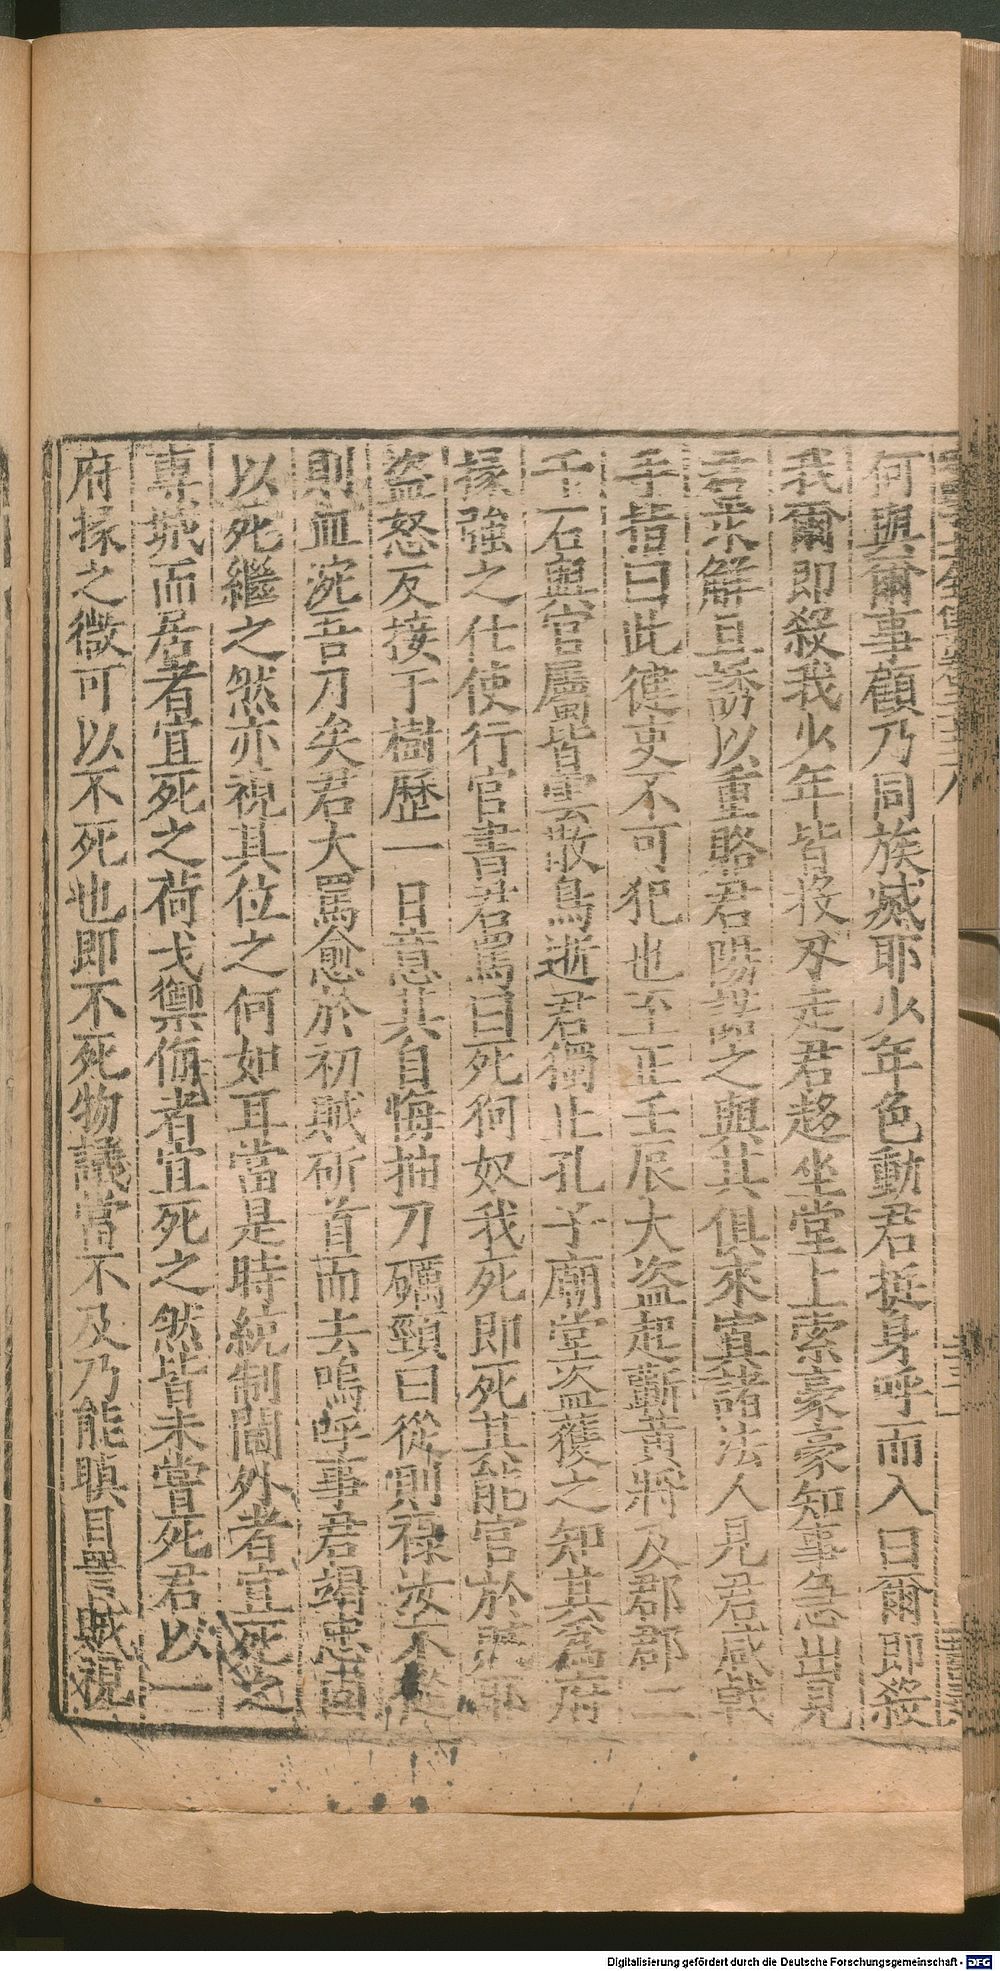 何與爾事顧乃同族滅耶少年色動君挺身呼而入曰爾即殺
我爾即殺我少年皆投刃走君趍坐堂上索豪豪知事急出見
君求解且誘以重賂君陽諾之與其俱來寘諸法人見君咸戟
手皆曰此健吏不可犯也至正壬辰大盗起蘄黄將及郡郡二
千石與官屬皆雲散鳥逝君獨止孔子廟堂盗獲之知其為府
掾強之仕使行官書君罵曰死狗奴我死即死其能官於賊耶
盗怒反接于樹歷一日意其自悔抽刀礪頸曰從則祿汝不從
則血涴吾刀矣君大罵愈於初賊斫首而去嗚呼事君竭忠固
以死繼之然亦視其位之何如耳當是時統制閫外者宜死之
專城而居者宜死之荷戈禦侮者宜死之然皆未嘗死君以一
府掾之微可以不死也即不死物議當不及乃能瞋目詈賊視
Digitalisierung gefördert durch die Deutsche Forschungsgemeinschaft - DFG